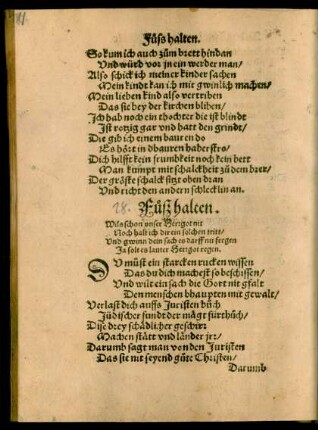 Füss halten.
So kum ich auch zům brett hindan
Und würd vor in ein werder man/
Also schick ich meiner kinder sachen
Mein kindt kan ich mit gwinlich machen/
Mein lieben kind also vertriben
Das sie bey der kirchen bliben/
Ich hab noch ein thochter die ist blindt
Ist rotzig gar und hatt den grindt/
Die gib ich einem bauren do
Es hört in dhauren haberstro/
Dich hilfft kein frumbkeit noch kein bett
Man kumpt mit schalckheit zů dem bret/
Der gröste schalck sitzt oben dran
Und richt den andern schlecklin an.
28. Füß halten.
Wils schon unser Herrgot nit
Noch halt ich dir ein solchen tritt/
Und gwinn dein sach es darff nit sorgen
Ja solt es lauter Herrgot regen.
DU můst ein starcken rucken wissen
Das du dich machest so beschissen/
Und wilt ein sach die Gott nit gfalt
Den menschen bhaupten mit gewalt/
Verlast dich auffs Juristen bůch
Jüdischer fundt der mägt fürthůch/
Dise drey schädlicher geschirr
Machen stätt und länder jrr/
Darumb sagt man von den Juristen
Das sie nit seyend gůte Christen/
Darumb